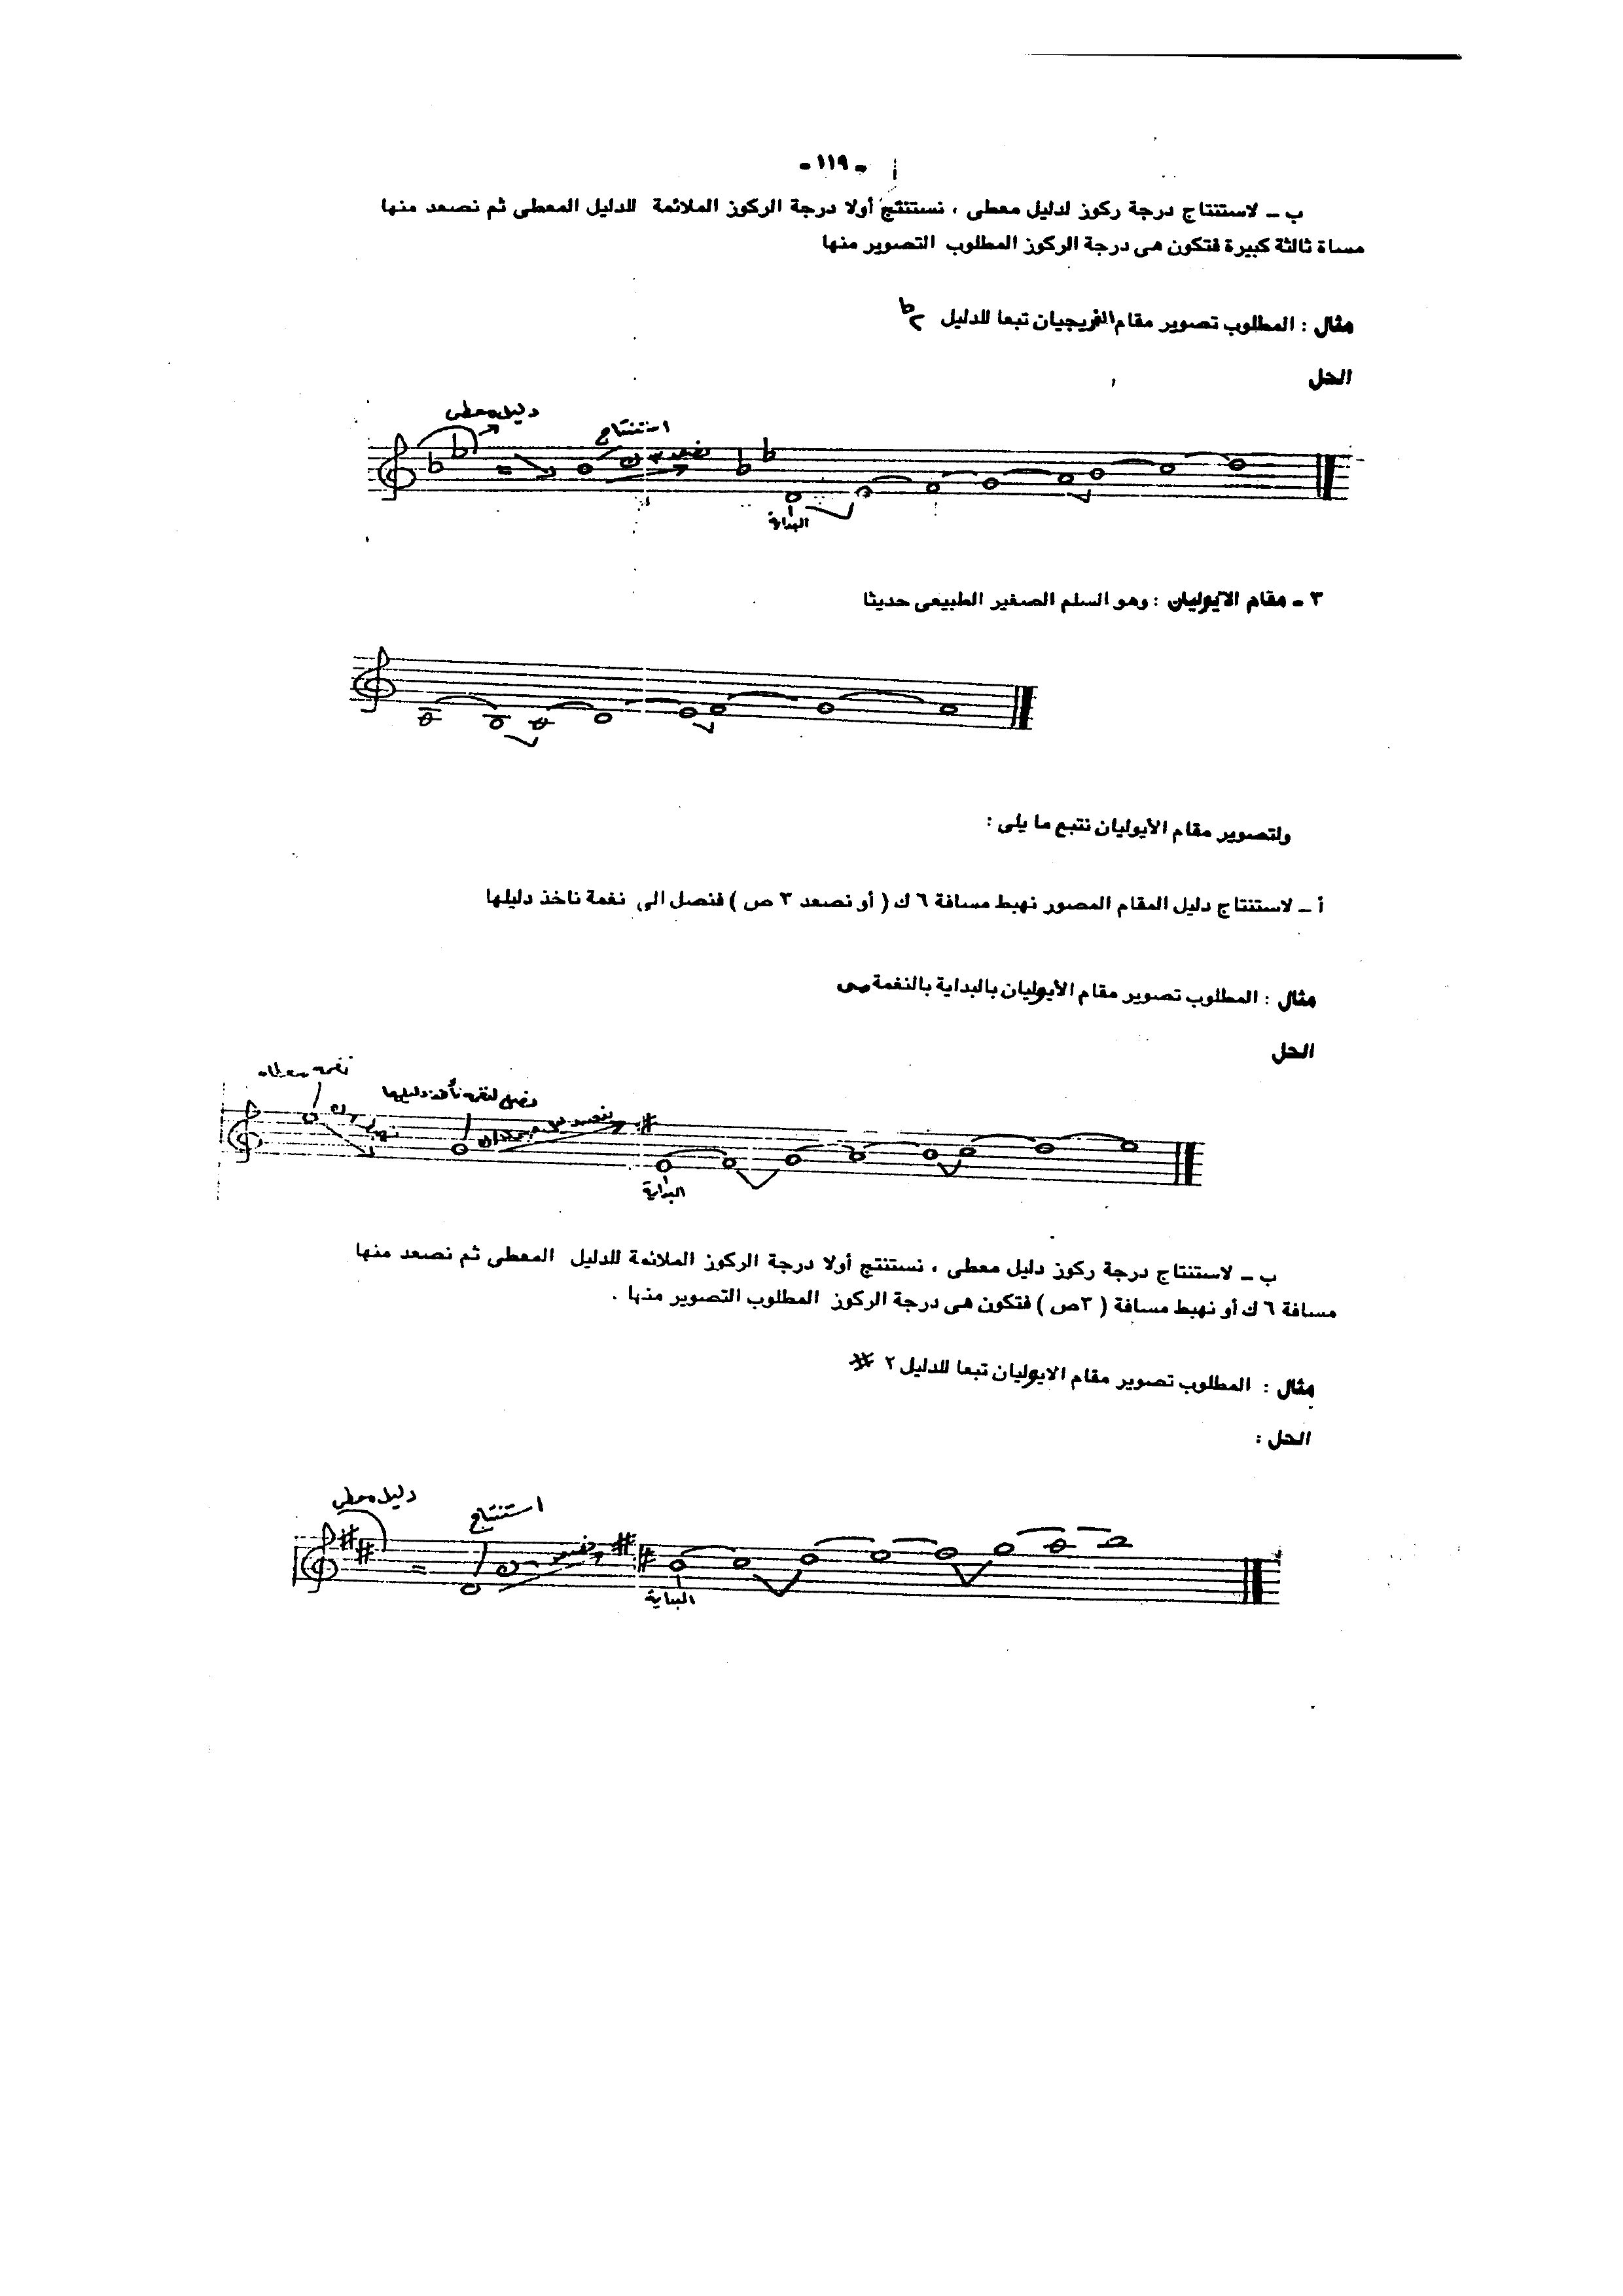 - ١١٩ -
ب - لاستنتاج درجة ركوز لدليل معطى ، نستنتج أولا درجة الركوز الملائمة للدليل المعطى ثم نصعد منها
مساة ثالثة كبيرة فتكون هى درجة الركوز المطلوب التصوير منها
مثال : المطلوب تصوير مقام الفريجيان تبعا للدليل ٢b
الحل
دليل معطى
استنتاج
نصعد ٣ ك
البداية
٣ - مقام الايوليان : وهو السلم الصغير الطبيعى حديثا
ولتصوير مقام الأيوليان نتبع ما يلى :
أ - لاستنتاج دليل المقام المصور نهبط مسافة ٦ ك ( أو نصعد ٣ ص ) فنصل الى نغمة ناخذ دليلها
مثال : المطلوب تصوير مقام الأيوليان بالبداية بالنغمة مى
الحل
نغمة معطاه
نهبط ٦ ك
نصل لنغمة نأخذ دليلها
البداية
ب - لاستنتاج درجة ركوز دليل معطى ، نستنتج أولا درجة الركوز الملائمة للدليل المعطى ثم نصعد منها
مسافة ٦ ك أو نهبط مسافة ( ٣ص ) فتكون هى درجة الركوز المطلوب التصوير منها .
مثال : المطلوب تصوير مقام الايوليان تبعا للدليل ٢ #
الحل :
دليل معطى
استنتاج
نصعد ٦ ك
البداية